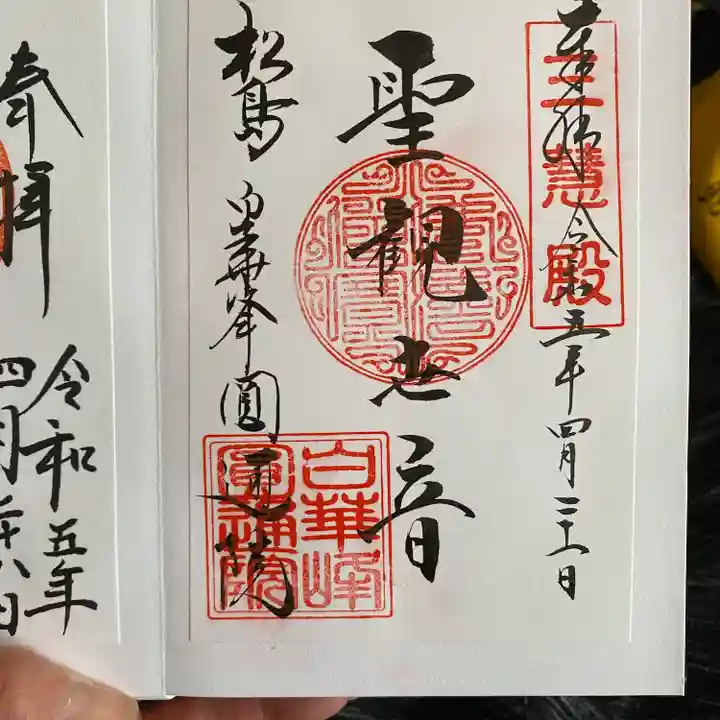 三慧殿
令和五年四月二十八日
聖観世音
松島 白華峰圓通院
白華峰
圓通院
奉拝
令和五年
四月二十八日